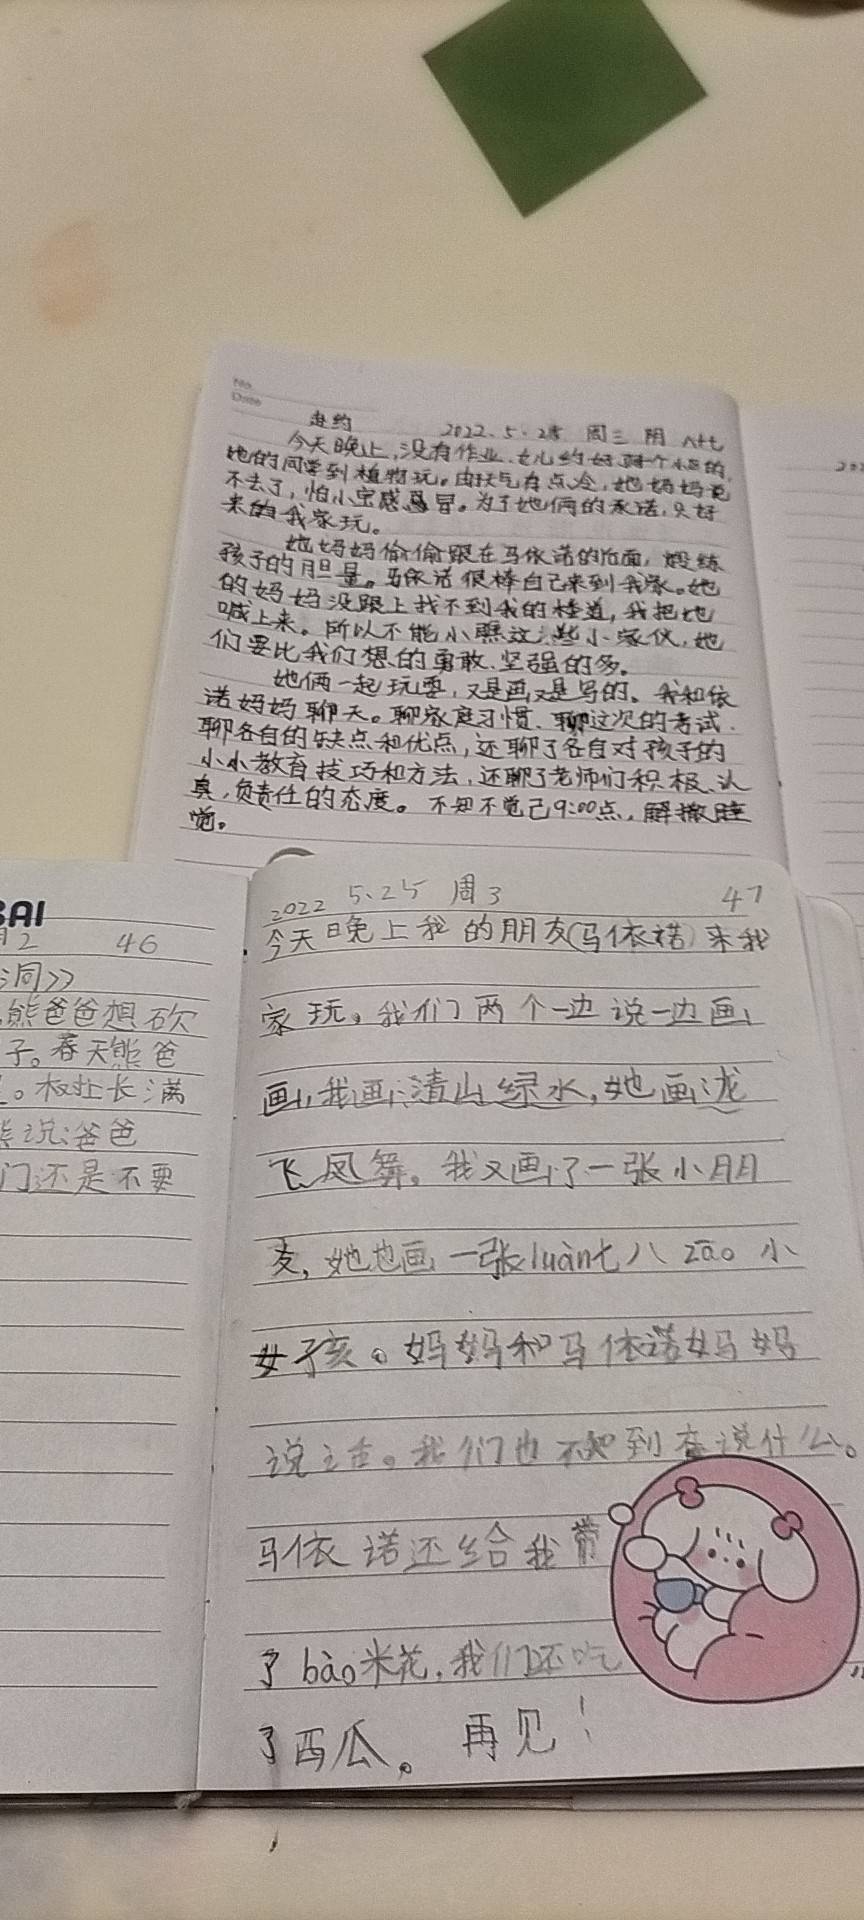 No.
Date
赴约 2022.5.25 周三 阴
今天晚上,没有作业.女儿约好
她的同学到植物玩。由天气有点冷,她妈妈说
不去了,怕小宝感冒。为了她俩的承诺,只好
来我家玩。
她妈妈偷偷跟在马依诺的后面,煅练
孩子的胆量。马依诺很棒自己来到我家。她
的妈妈没跟上找不到我的楼道,我把她
喊上来。所以不能小瞧这些小家伙,她
们要比我们想的勇敢、坚强的多。
她俩一起玩耍,又是画又是写的。我和依
诺妈妈聊天。聊家庭习惯、聊这次的考试.
聊各自的缺点和优点,还聊了各自对孩子的
小小教育技巧和方法,还聊了老师们积极、认
真,负责任的态度。不知不觉已9:00点,解撤睡
觉。
SAI
2 46
洞》
熊爸爸想砍
子。春天熊爸
。长满
说:爸爸
门还是不要
2022 5.25 周3 47
今天晚上我的朋友(马依诺)来我
家玩,我们两个一边说一边画,
画,我画:清山绿水,她画:龙
飞凤舞。我又画了一张小朋
友,她也画一张luàn七八zāo小
女孩。妈妈和马依诺妈妈
说话。我们也不知到在说什么。
马依诺还给我带
了bào米花,我们还吃
了西瓜。再见!